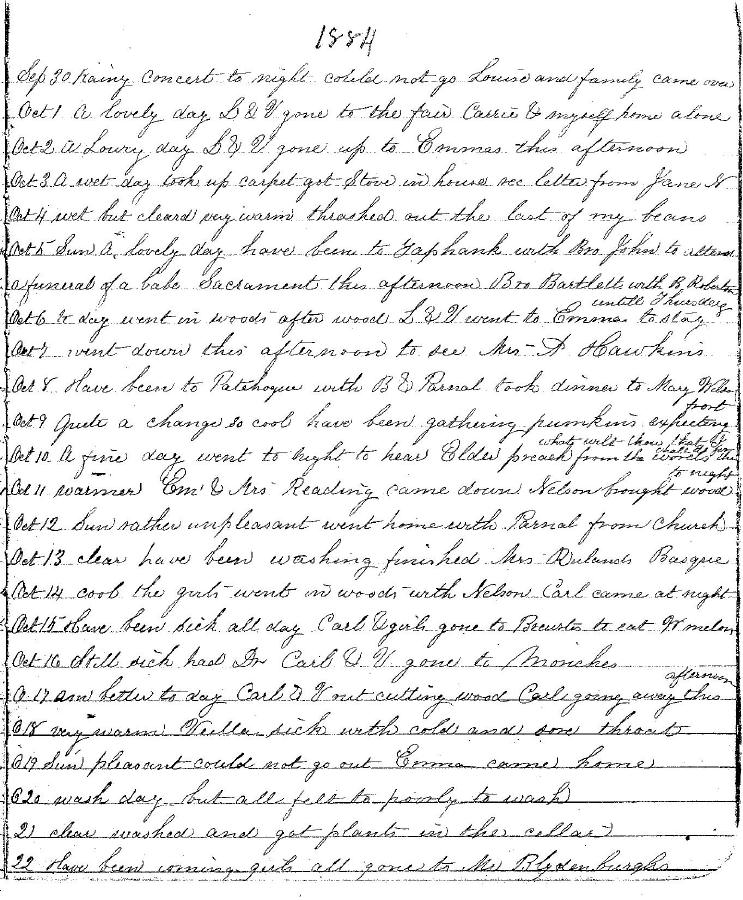 1884
Sep 30 Rainy concert to night could not go Louise and family came over
Oct 1 A lovely day L & V gone to the fair Carrie & myself home alone
Oct 2 A Lowry day L & V gone up to Emmas this afternoon
Oct 3 A wet day took up carpet got Stove in house rec letter from Jane N
Oct 4 wet but cleard very warm thrashed out the last of my beans
Oct 5 Sun A lovely day have been to Yaphank with Bro John to attend
a funeral of a babe Sacrament this afternoon Bro Bartlett with B, Robertson
untill Thursday
Oct 6 to day went in woods after wood L & V went to Emma to stay
Oct 7 went down this afternoon to see Mrs A Hawkins
Oct 8 Have been to Patchogue with B & Parnal took dinner to Mary
frost
Oct 9 Quite a change so cool have been gathering pumkins expecting
what wilt thou that I
shall do
Oct 10 A fine day went to night to hear Elder preach from the words
to night
Oct 11 warmer Em & Mrs Reading came down Nelson bought wood
Oct 12 Sun rather unpleasant went home with Parnal from church
Oct 13 clear have been washing finished Mrs Rulands Basque
Oct 14 cool the girls went in woods with Nelson Carl came at night
Oct 15 Have been sick all day Carl & girls gone to to eat W melon
Oct 16 Still sick had Dr Carl & V gone to Moriches
afternoon
O 17 am better to day Carl & V out cutting wood Carl going away this
O 18 very warm Vella sick with cold and sore throat
O 19 Sun pleasant could not go out Emma came home
O 20 wash day but all felt to poorly to wash
21 clear washed and got plants in the cellar
22 Have been girls all gone to Mr Blydenburghs